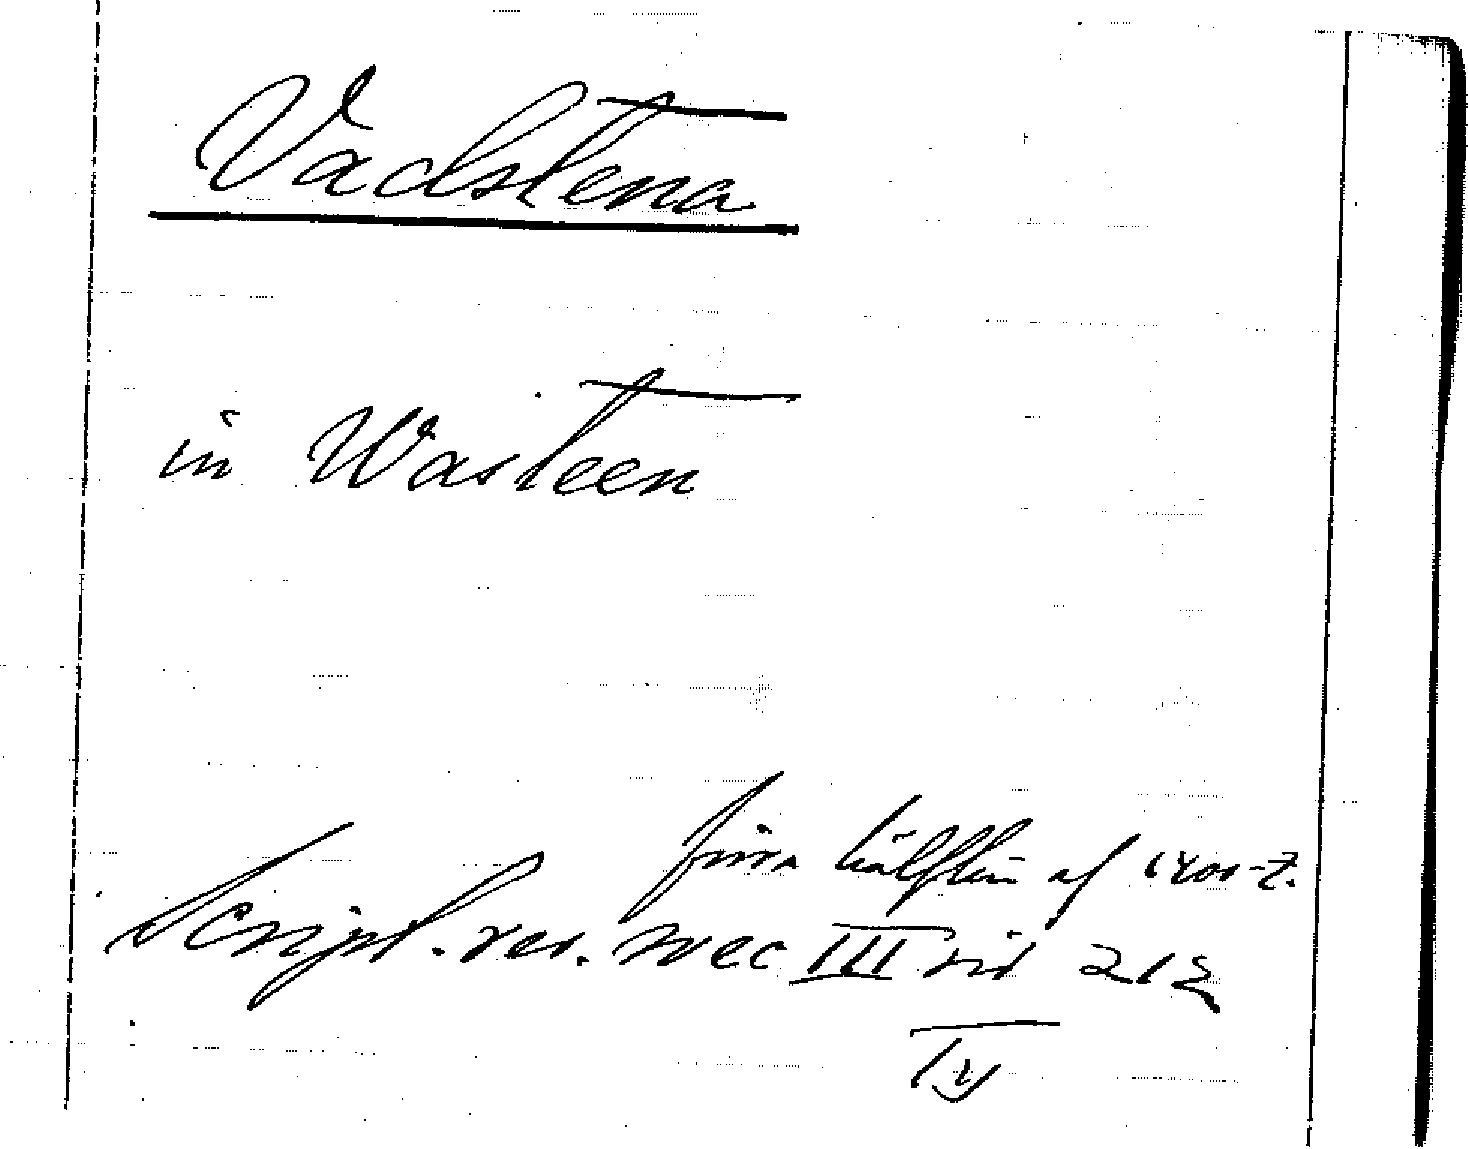 Vadstena
in Wasteen
förra hälften af 1400-t.
Script. rer. svec III sid 212
IV